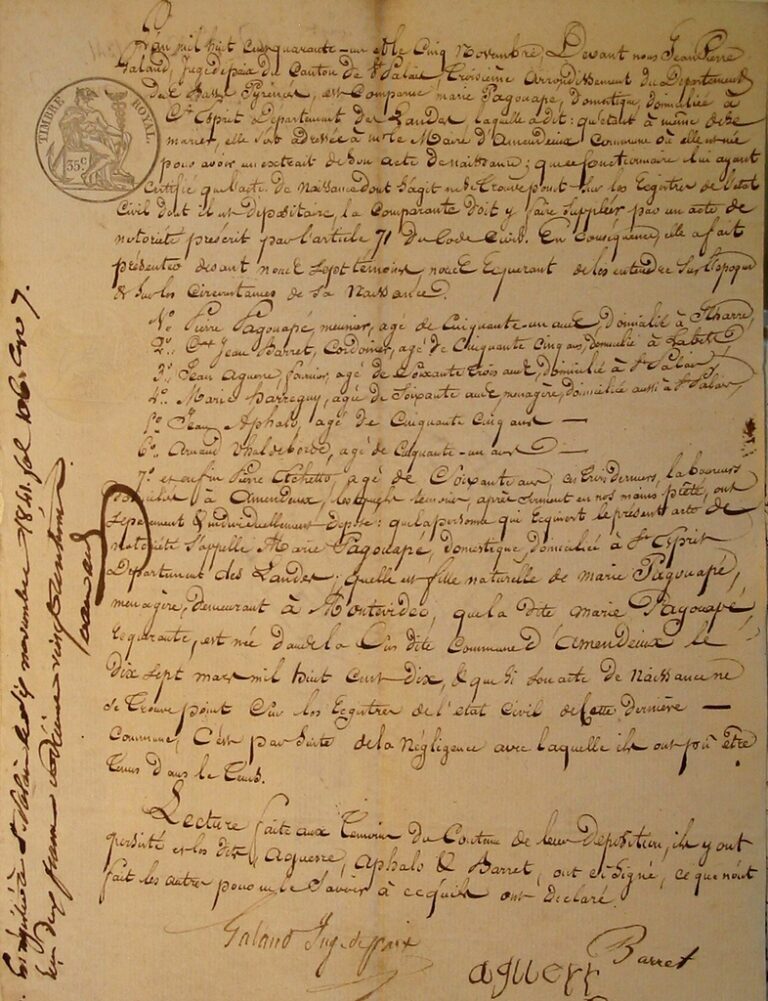 TIMBRE ROYAL
35 c
L'an mil huit cent quarante-un et le Cinq Novembre, Devant nous Jean Pierre
Galaud, Juge de paix du Canton de St Palais, Troisième Arrondissement du Département
des Basses Pyrénées, est Comparue marie Pagouapé, domestique, domiciliée à
St Esprit Département des Landes laquelle a dit: qu'étant à même de se
marier, elle s'est adressée à mr le Maire d'Amendeuix Commune où elle est née
pour avoir un extrait de son acte de naissance; que ce fonctionnaire lui ayant
certifié que l'acte De Naissance dont s'agit ne se trouve point sur les Registres de l'etat
Civil dont il est Dépositaire, la Comparante doit y faire suppléer par un acte de
notoriété préscrit par l'article 71 du Code Civil. En Conséquence, elle a fait
présenter devant nous sept temoins, nous Requerant de les entendre sur l'époque
& sur les Circonstances de sa Naissance.
1o. Pierre Pagouapé, meunier, agé de Cinquante-un ans, domicilié à Itharre,
2o. Jean Barret, Cordonier, agé de Cinquante Cinq ans, domicilié à Labets
3o. Jean Aguerre, fournier, agé de Soixante trois ans, domicilié à St Palais
4o. Marie Darreguy, agée de Soixante ans menagère, domiciliée aussi à St Palais,
5o. Jean Aphalo, agé de Cinquante Cinq ans —
6o. Arnaud Uhaldeborde, agé de Cinquante-un ans
7o. et enfin Pierre Etchetto, agé de Soixante ans, ces trois derniers, laboureurs
à Amendeux, lesquels temoins, après serment en nos mains prêté, ont
séparement & individuellement déposé: que la personne qui Requiert le présent acte de
notoriété s'appelle Marie Pagouapé, domestique, domiciliée à St Esprit
Département des Landes, qu'elle est fille naturelle de marie Pagouapé,
menagère, demeurant à Montevideo, que la dite marie Pagouapé
Requerante, est née dans la sus dite Commune d'Amendeux le
Dix sept mars mil huit Cent dix, & que si son acte de Naissance ne
se trouve point sur les Registres de l'etat Civil de cette dernière —
Commune, C'est par suite de la Négligence avec laquelle ils ont pû être
tenus dans le tems.
Lecture faite aux temoins du Contenu de leur déposition, ils y ont
persisté et les dits Aguerre, Aphalo & Barret, ont ci signé, ce que n'ont
fait les autres pour ne le Savoir à ce qu'ils ont déclaré.
Galaud Juge de paix
Barret
aguerr
Enregistré à St Palais le novembre 1841. fol. 126 case 7.
Reçu deux francs vingt centimes